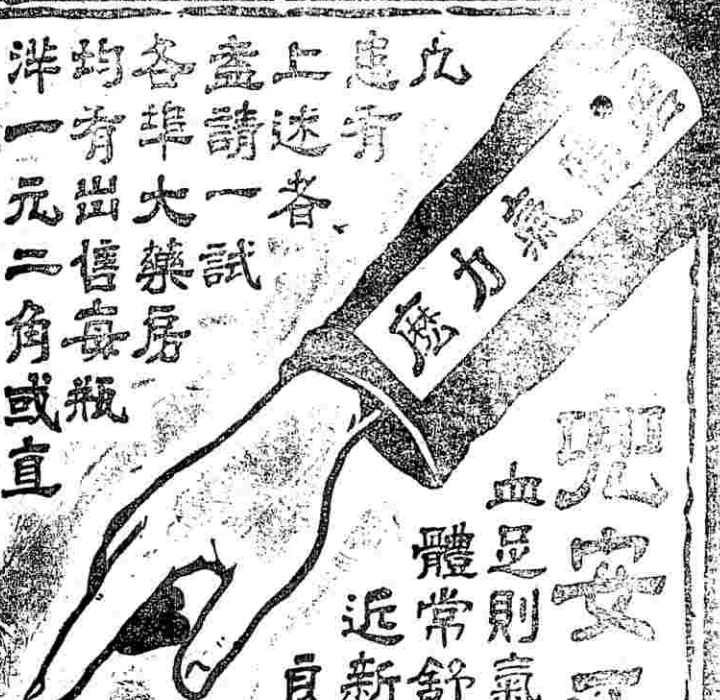 凡
患有
上述者
盍請一試
各埠大藥房
均有出售每瓶
洋一元二角或直
氣力麼
兜安
血足則氣
體常舒
近新
良